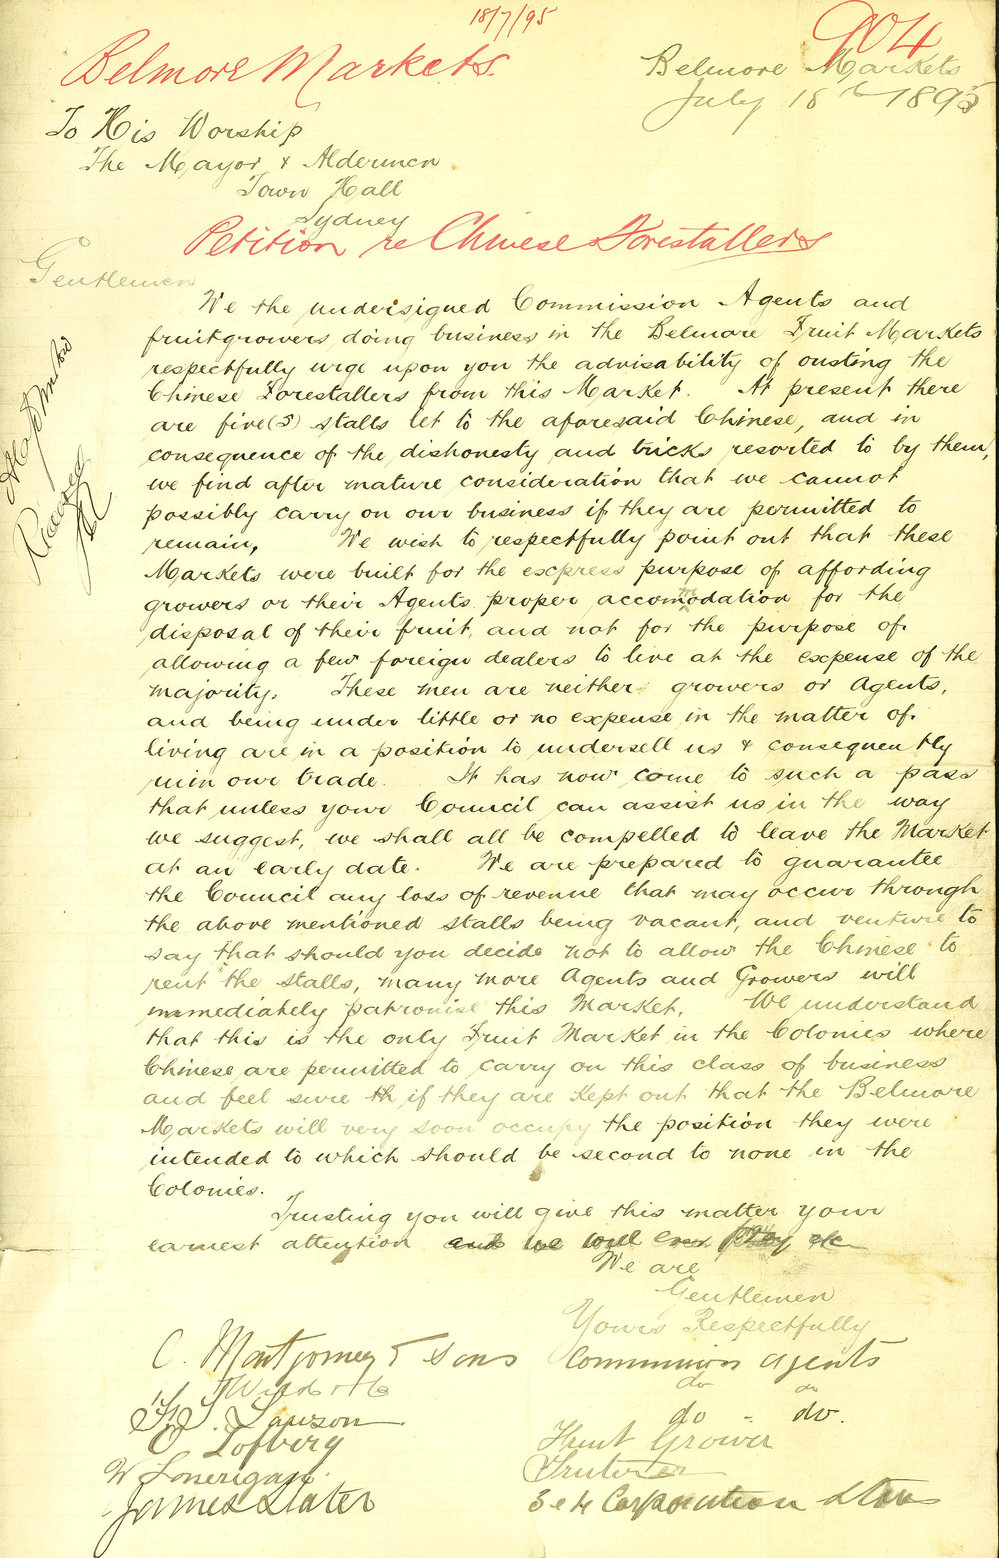 18/7/95
904
Belmore Markets.
Belmore Markets
July 18th 1895
To His Worship
The Mayor & Aldermen
Town Hall
Sydney
Petition re Chinese Forestallers
Gentlemen
We the undersigned Commission Agents and
fruitgrowers doing business in the Belmore Fruit Markets
respectfully urge upon you the advisability of ousting the
Chinese Forestallers from this Market. At present there
are five (5) stalls let to the aforesaid Chinese, and in
consequence of the dishonesty and tricks resorted to by them,
we find after mature consideration that we cannot
possibly carry on our business if they are permitted to
remain. We wish to respectfully point out that these
Markets were built for the express purpose of affording
growers or their Agents proper accommodation for the
disposal of their fruit, and not for the purpose of
allowing a few foreign dealers to live at the expense of the
majority. These men are neither growers or Agents,
and being under little or no expense in the matter of
living are in a position to undersell us & consequently
ruin our trade. It has now come to such a pass
that unless your Council can assist us in the way
we suggest, we shall all be compelled to leave the Market
at an early date. We are prepared to guarantee
the Council any loss of revenue that may occur through
the above mentioned stalls being vacant, and venture to
say that should you decide not to allow the Chinese to
rent the stalls, many more Agents and Growers will
immediately patronise this Market. We understand
that this is the only Fruit Market in the Colonies where
Chinese are permitted to carry on this class of business
and feel sure th if they are kept out that the Belmore
Markets will very soon occupy the position they were
intended to which should be second to none in the
Colonies.
Trusting you will give this matter your
earnest attention and we will ever pray etc
We are
Gentlemen
Yours Respectfully
C. Montgomery & Sons Commission agents
do do
Lawson do - do.
C Lofberg Fruit Grower
W Lonerigan Fruiterer
James Slater 3 & 4 Corporation Stores